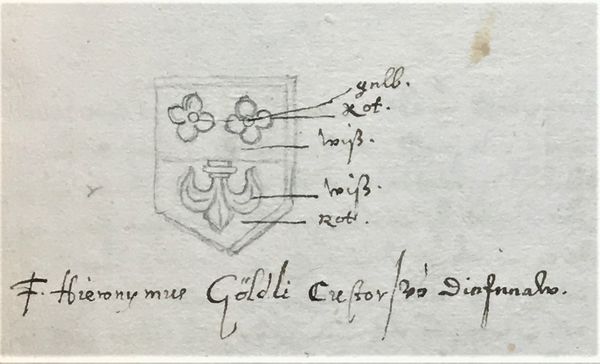 gelb.
Rot.
wiß.
wiß.
Rot.
F. Hieronymus Göldli Custor